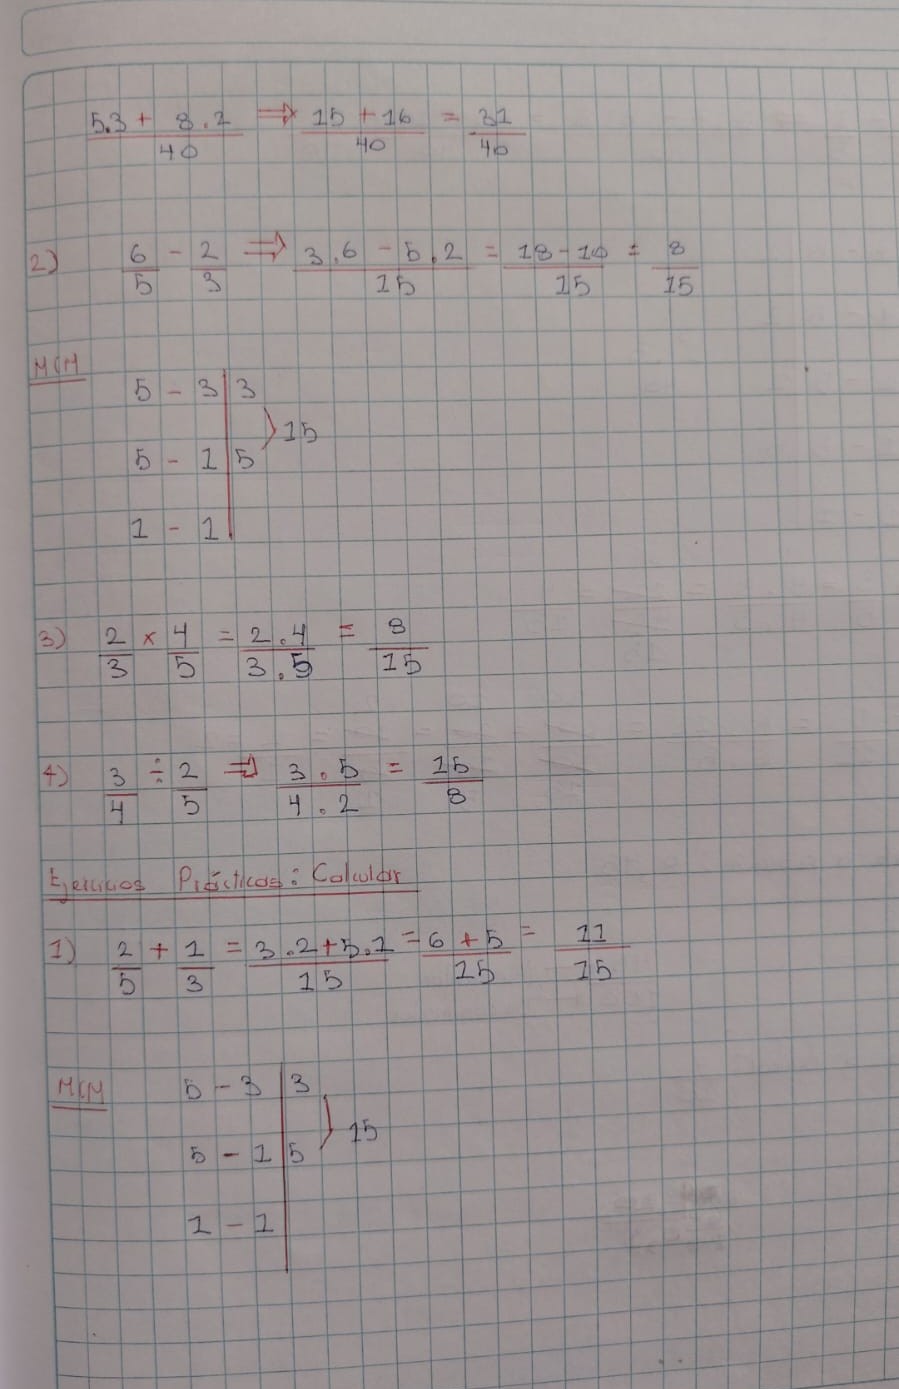 5.3 + 8.2 / 40 ⇒ 15 + 16 / 40 = 31 / 40
2) 6/5 - 2/3 ⇒ 3.6 - 5.2 / 15 = 18 - 10 / 15 = 8/15
MCM
5 - 3 | 3
15
5 - 1 | 5
1 - 1
3) 2/3 x 4/5 = 2.4 / 3.5 = 8/15
4) 3/4 ÷ 2/5 ⇒ 3.5 / 4.2 = 15/8
Ejercicios Prácticos: Calcular
1) 2/5 + 1/3 = 3.2+5.1 / 15 = 6 + 5 / 15 = 11/15
MCM
5 - 3 | 3
15
5 - 1 | 5
1 - 1